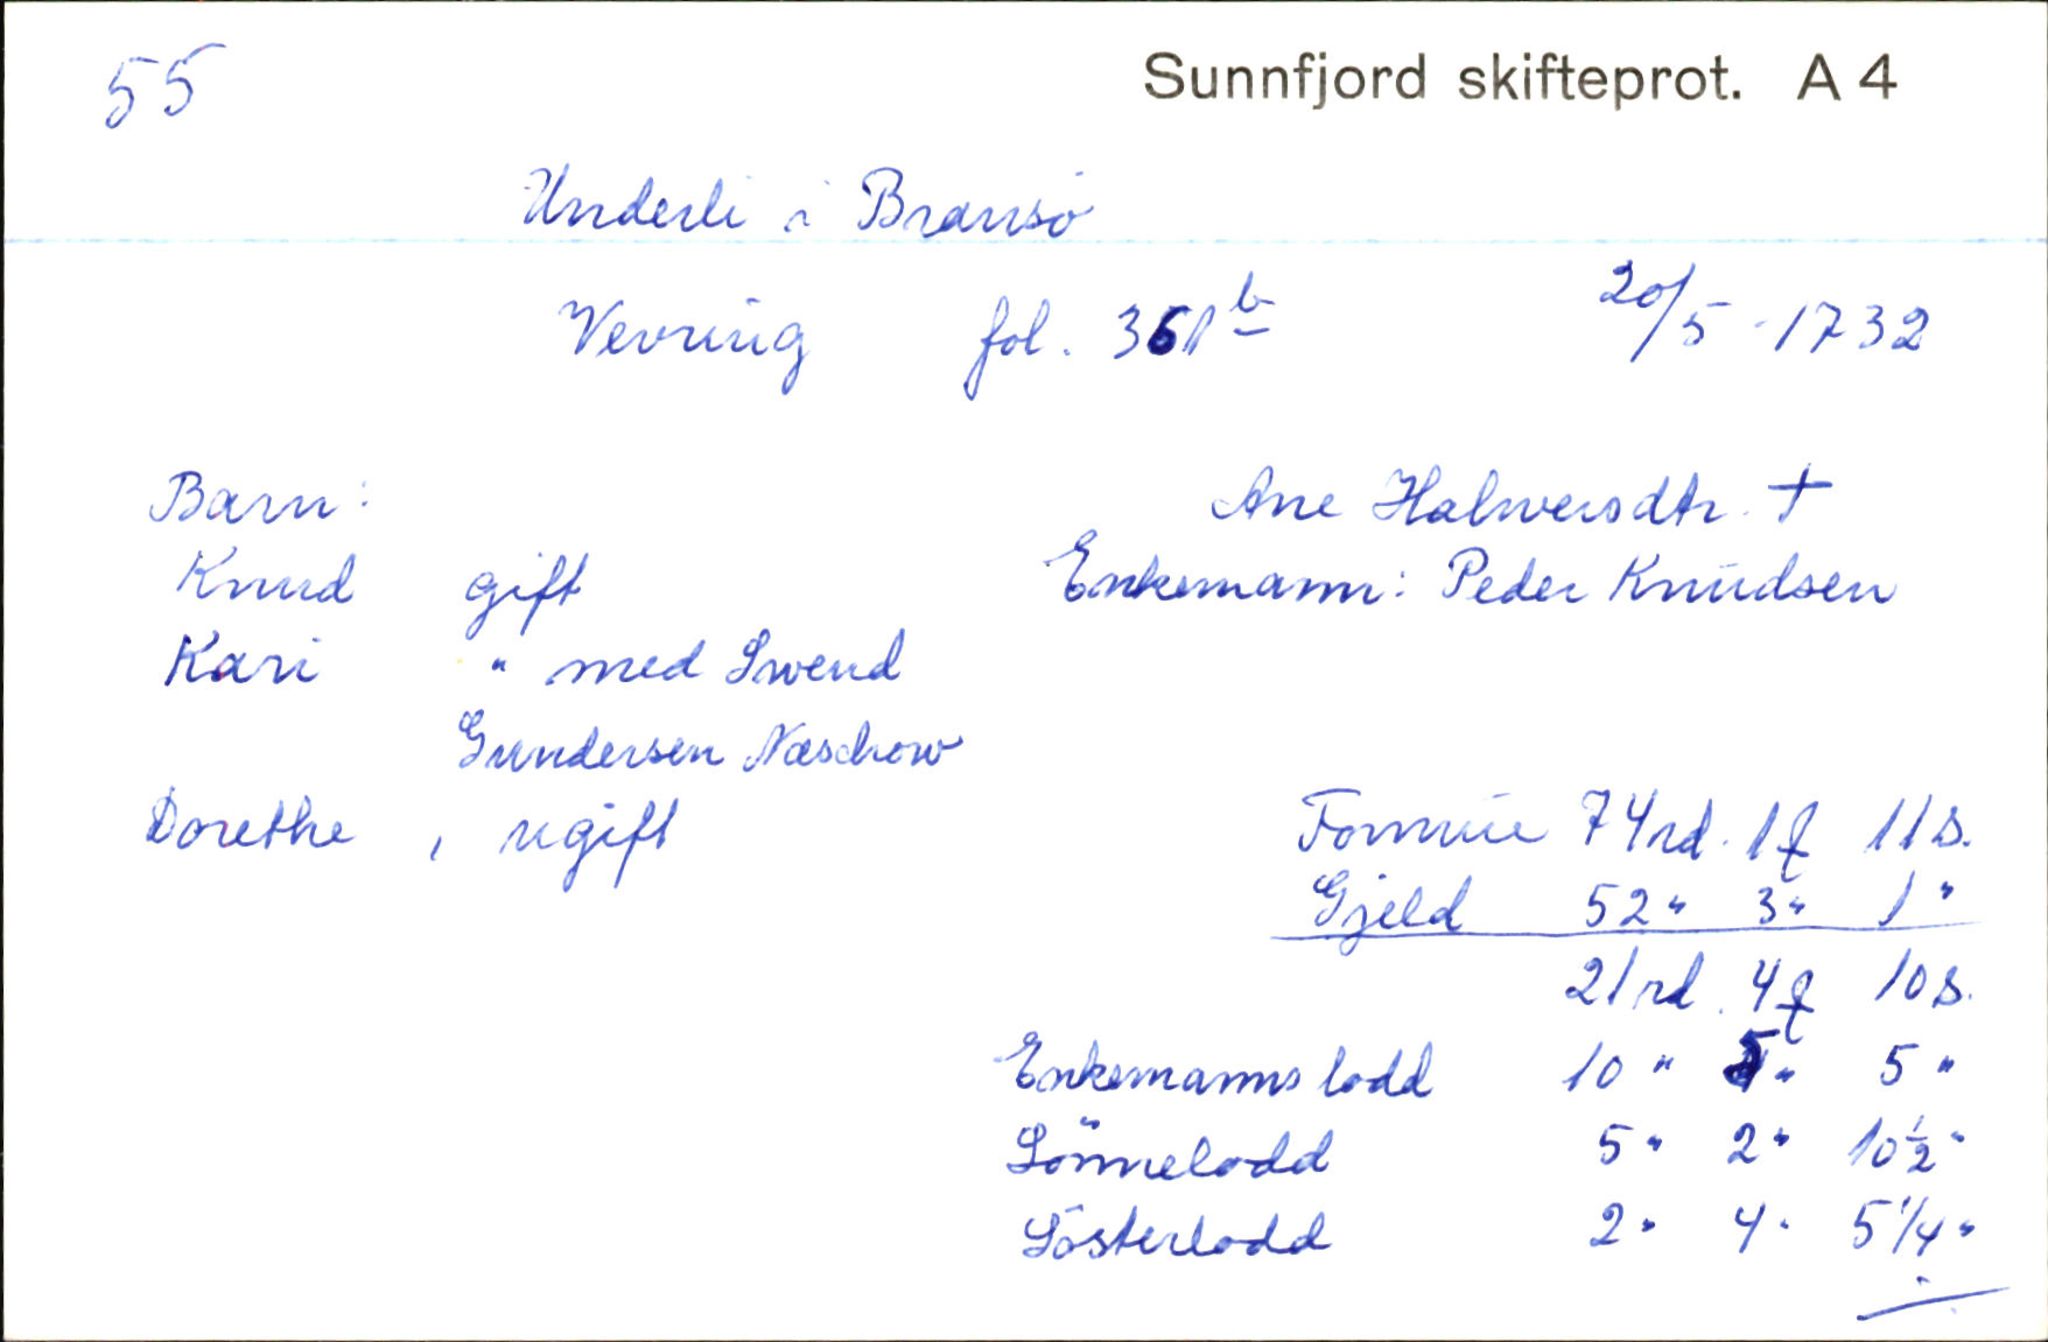 55
Sunnfjord skifteprot. A 4
Underli i Bransö
Vevring fol. 361b 20/5 - 1732
Barn: Ane Halvversdtr. †
Knud gift Enkemann: Peder Knudsen
Kari " med Swend
Gundersen Næschow
Dorethe , ugift
Formue 74 rd. 1 ƒ 11 s.
Gjeld 52 " 3 " 1 "
21 rd. 4 ƒ 10 s.
Enkemanns lodd 10 " 5 " 5 "
Sönnelodd 5 " 2 " 10 1/2 "
Sösterlodd 2 " 4 " 5 1/4 "